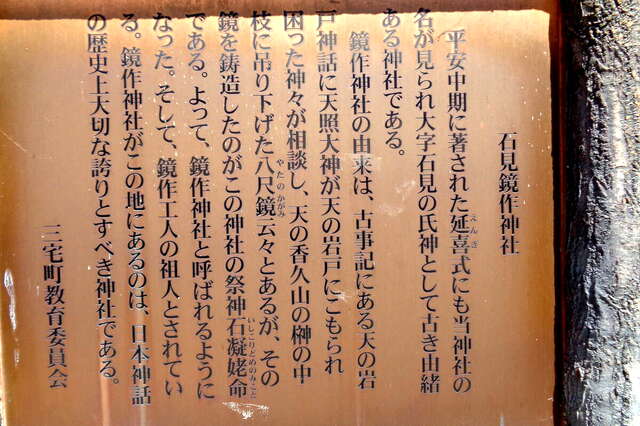 石見鏡作神社
平安中期に著された延喜式にも当神社の
名が見られ大字石見の氏神として古き由緒
ある神社である。
鏡作神社の由来は、古事記にある天の岩
戸神話に天照大神が天の岩戸にこもられ
困った神々が相談し、天の香久山の榊の中
枝に吊り下げた八尺鏡云々とあるが、その
鏡を鋳造したのがこの神社の祭神石凝姥命
である。よって、鏡作神社と呼ばれるように
なった。そして、鏡作工人の祖人とされてい
る。鏡作神社がこの地にあるのは、日本神話
の歴史上大切な誇りとすべき神社である。
三宅町教育委員会
えんぎ
やたのかがみ
いしこりどめのみこと